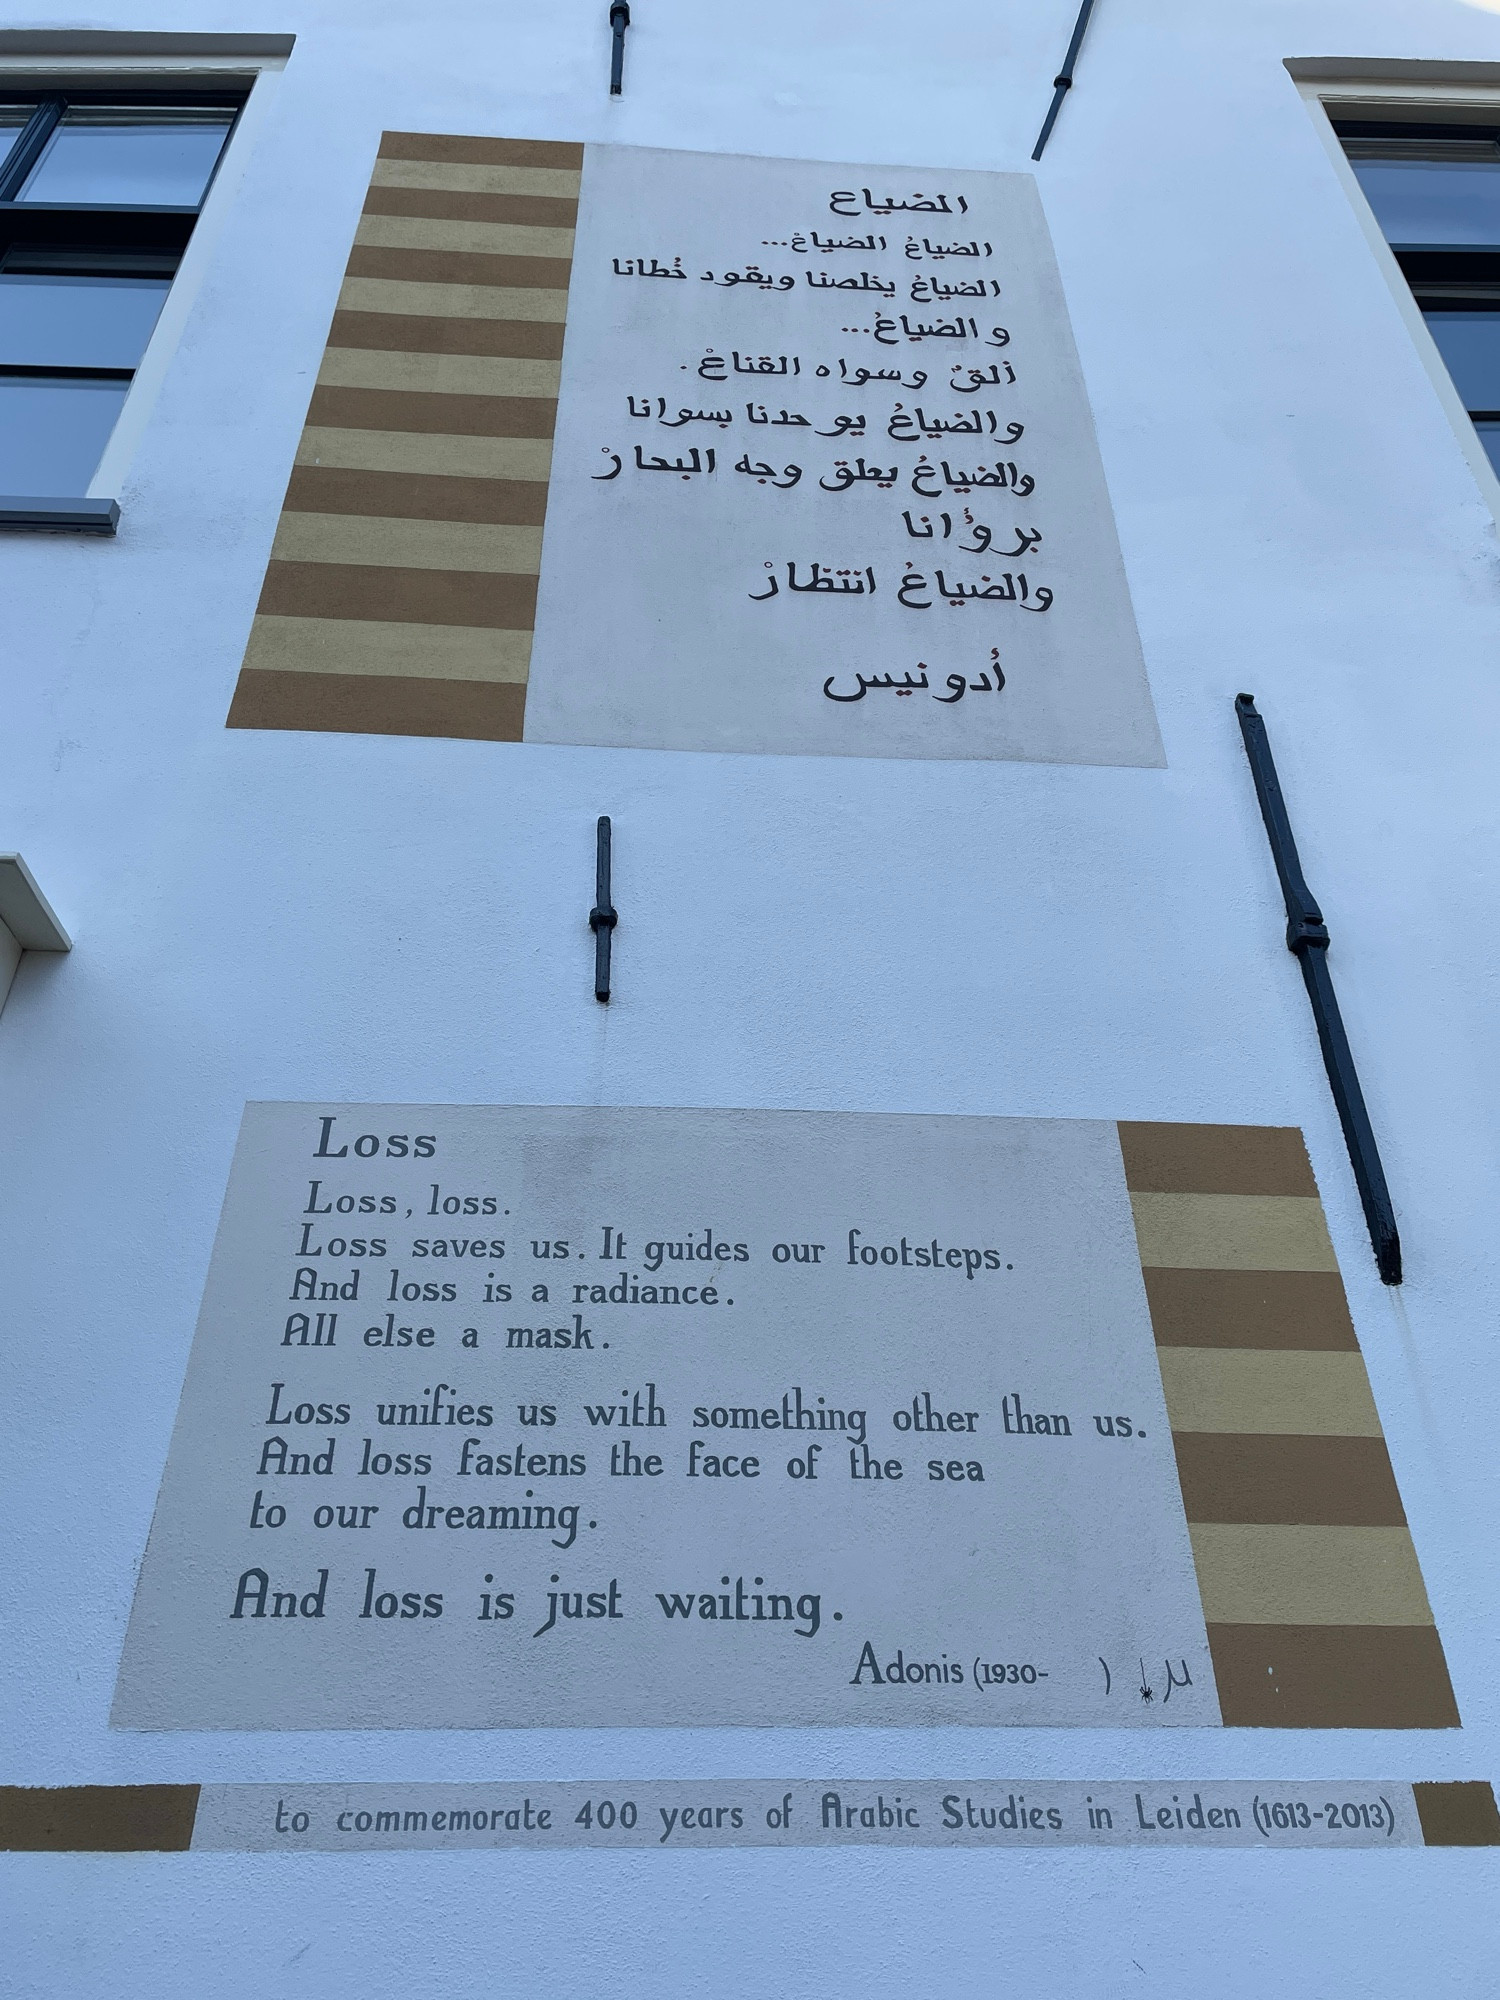 الضياع
الضياعُ الضياعْ...
الضياعُ يخلصنا ويقود خُطانا
و الضياعُ...
ألقٌ وسواه القناعْ.
والضياعُ يوحدنا بسوانا
والضياعُ يعلق وجه البحارْ
برؤانا
والضياعُ انتظارْ
أدونيس
Loss
Loss, loss.
Loss saves us. It guides our footsteps.
And loss is a radiance.
All else a mask.
Loss unifies us with something other than us.
And loss fastens the face of the sea
to our dreaming.
And loss is just waiting.
Adonis (1930- )
to commemorate 400 years of Arabic Studies in Leiden (1613-2013)